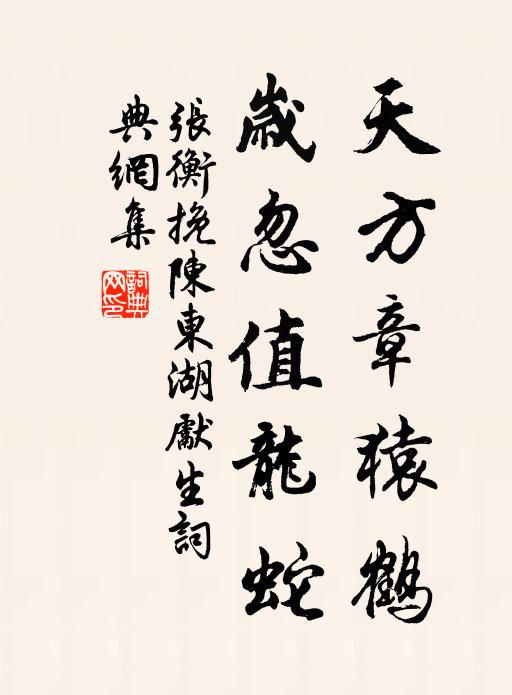 天方章猿鶴
歲忽值龍蛇
張衡挽陳東湖獻生詞
典網集
詞典网印